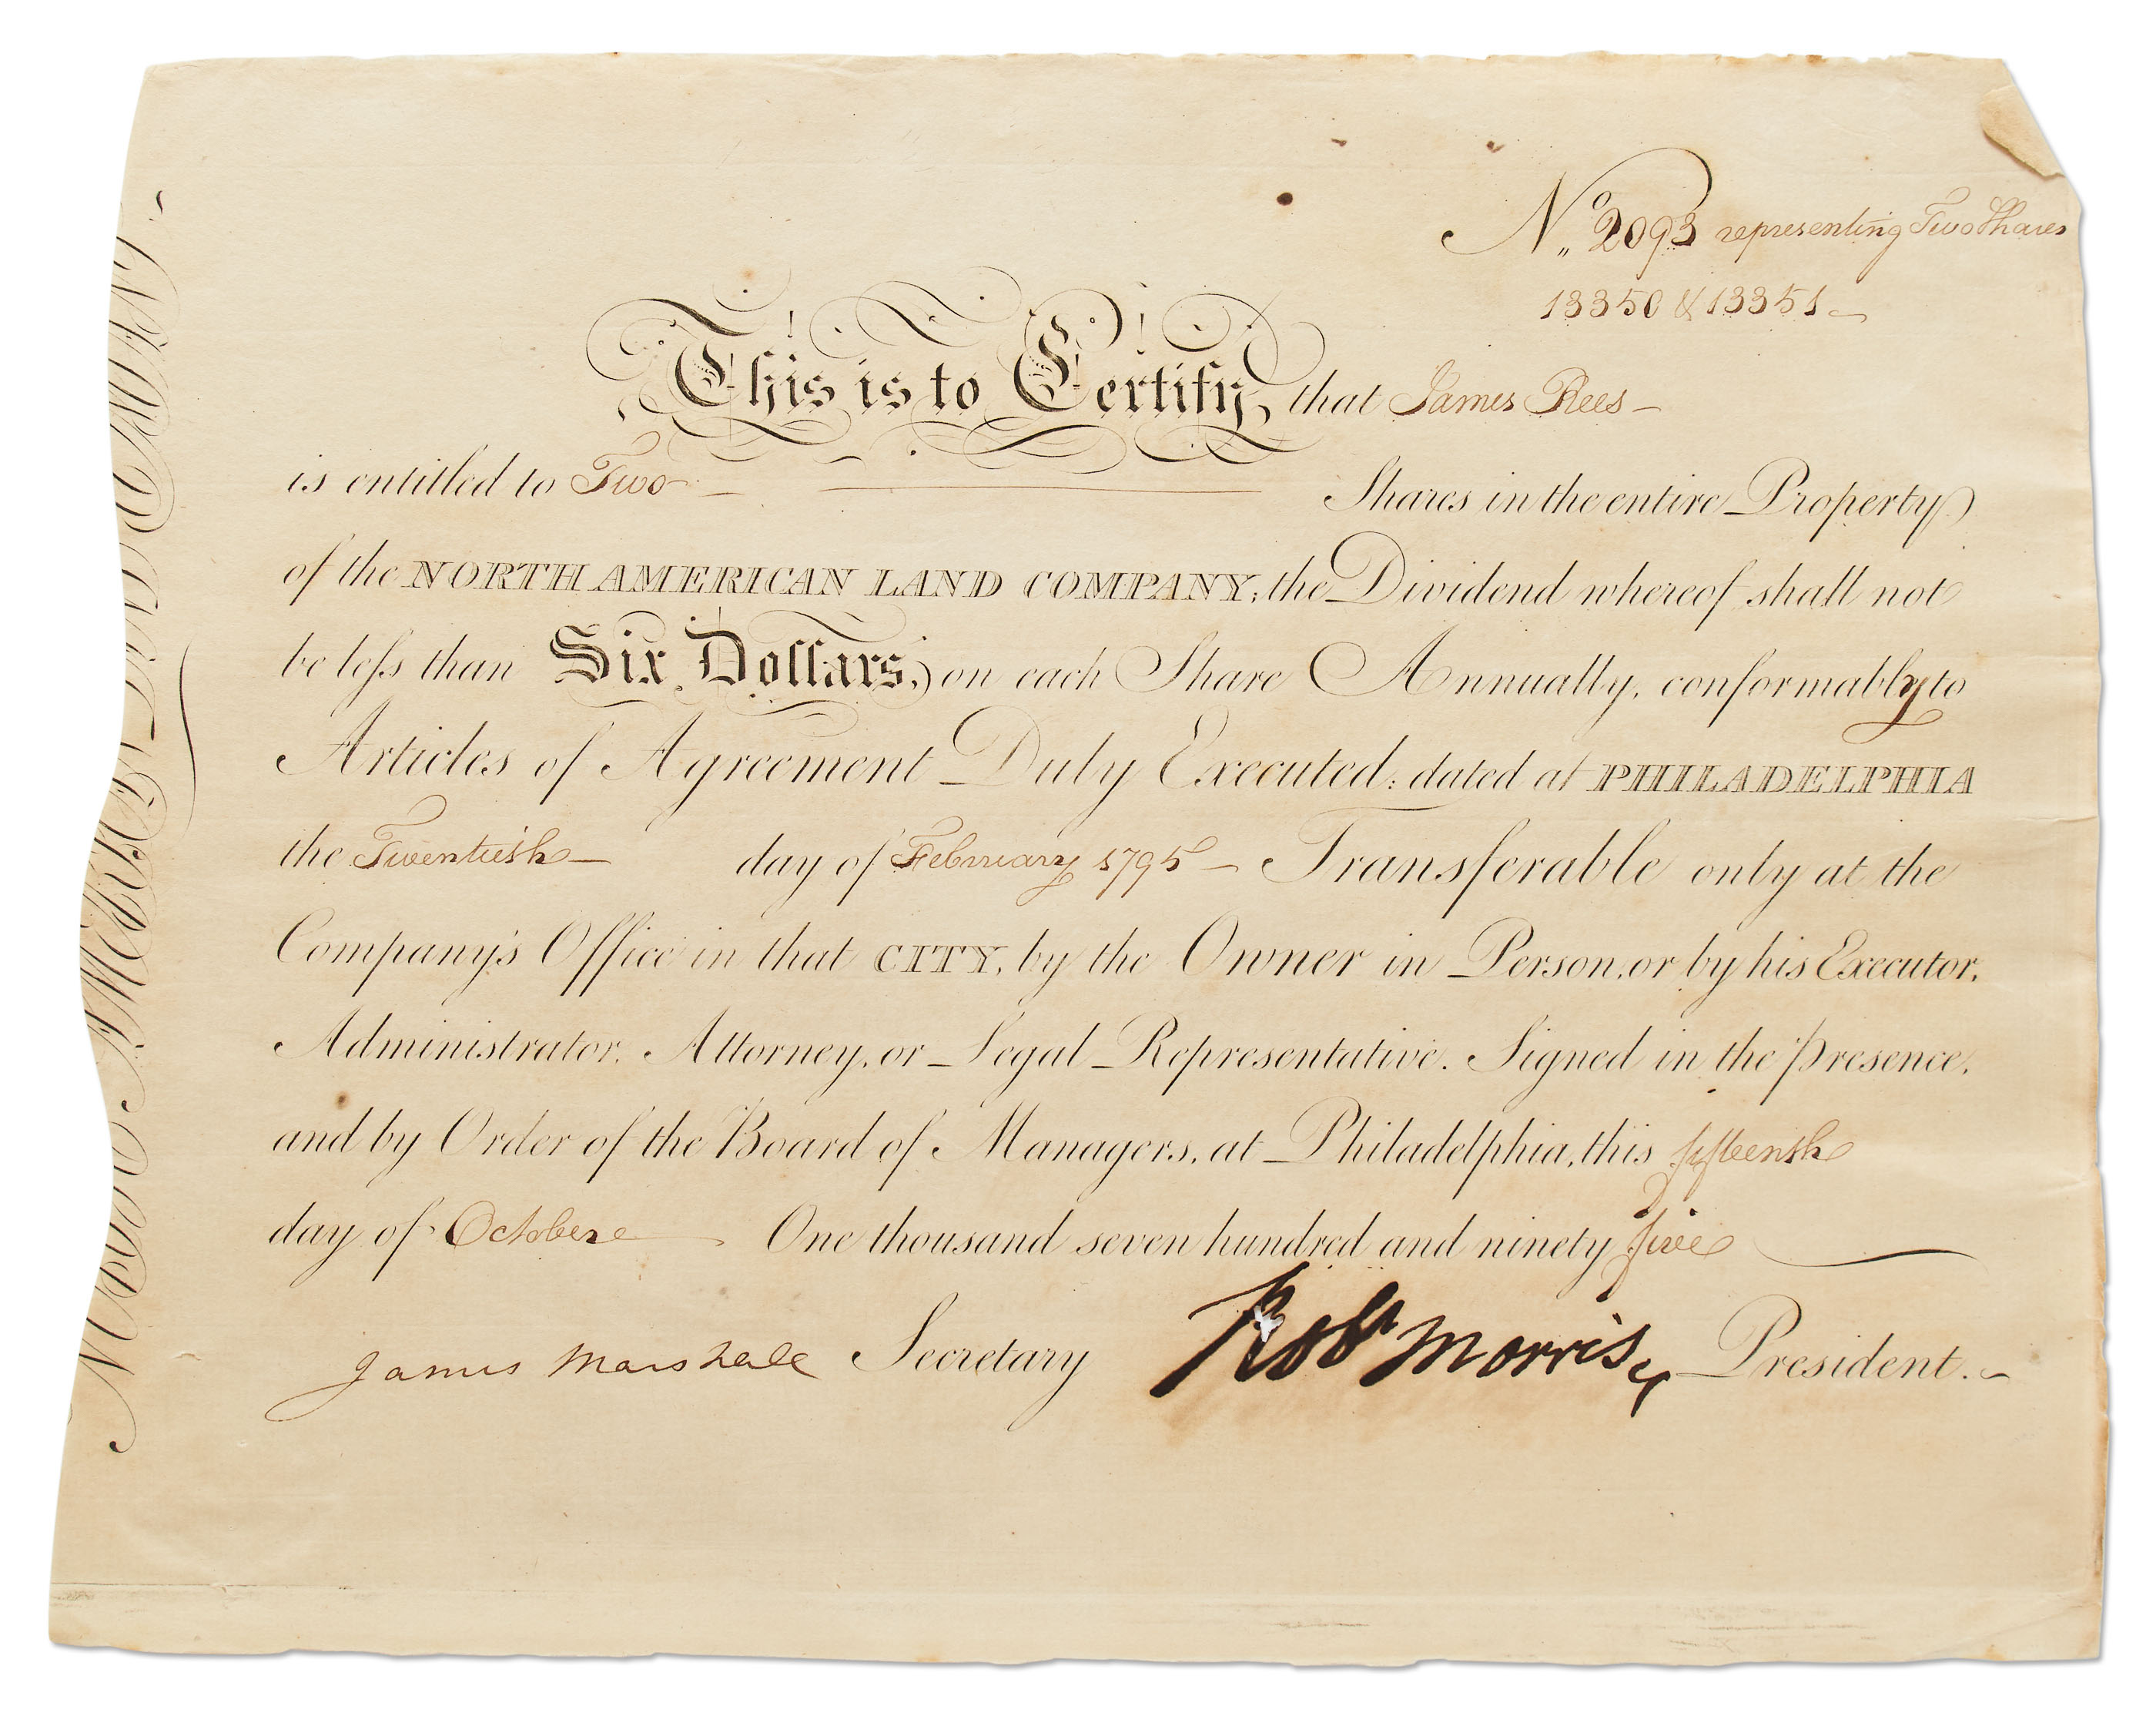 No. 2093 representing Two Shares
13350 & 13351
This is to Certify, that James Rees
is entitled to Two Shares in the entire Property
of the NORTH AMERICAN LAND COMPANY; the Dividend whereof shall not
be leſs than Six Dollars, on each Share Annually, conformably to
Articles of Agreement Duly Executed: dated at PHILADELPHIA
the Twentieth day of February 1795 Transferable only at the
Company's Office in that CITY, by the Owner in Person, or by his Executor,
Administrator, Attorney, or Legal Representative. Signed in the presence,
and by Order of the Board of Managers, at Philadelphia, this fifteenth
day of October One thousand seven hundred and ninety five
James Marshall Secretary Robt Morris President.